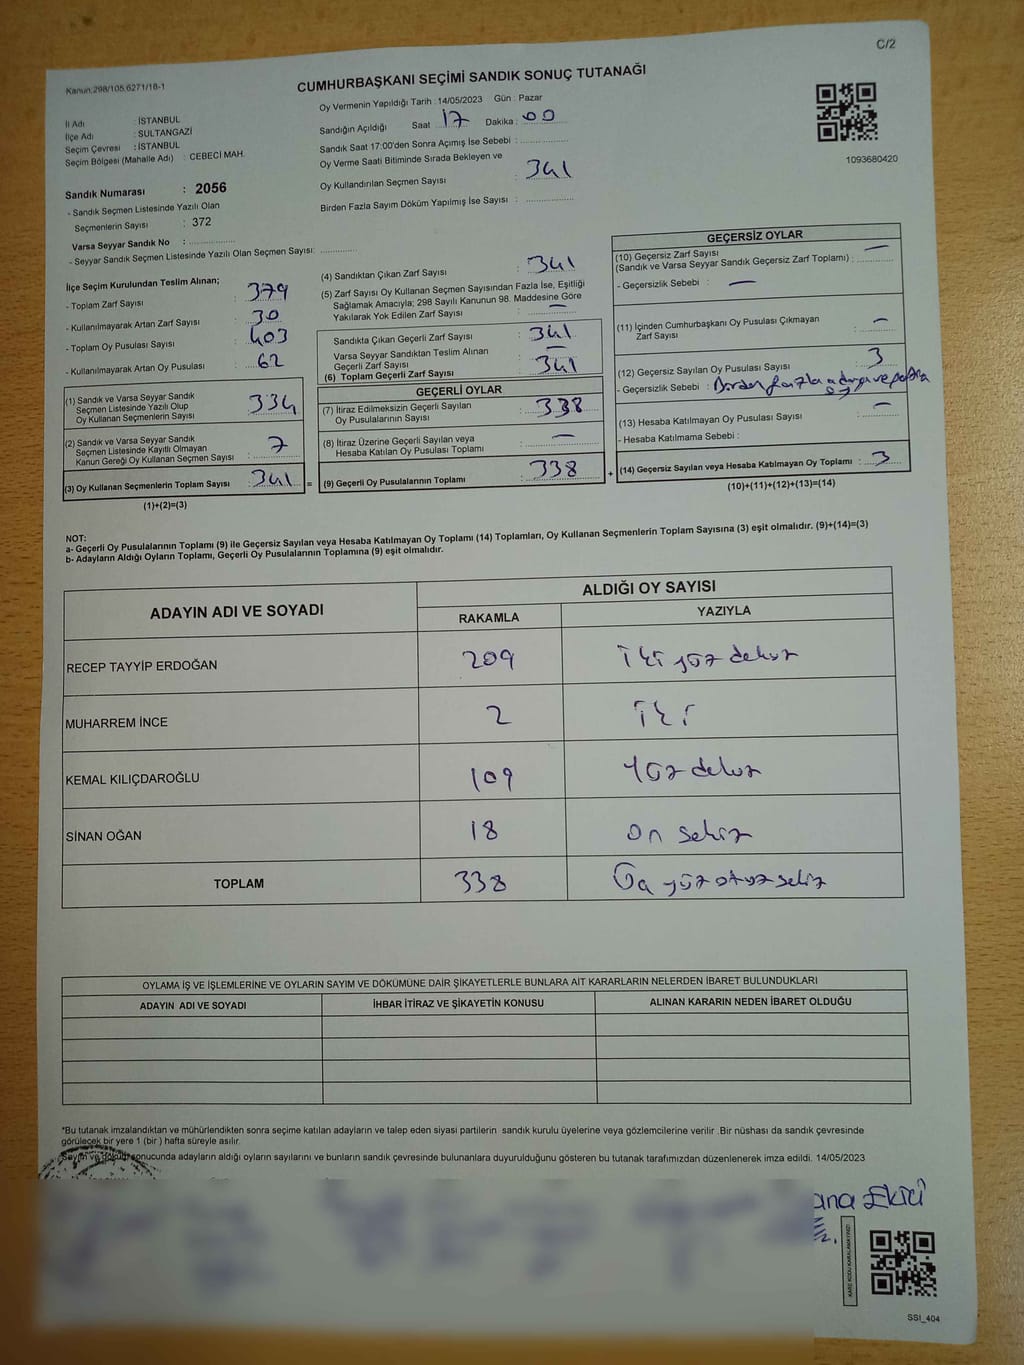 C/2
Kanun:298/105,6271/18-1
CUMHURBAŞKANI SEÇİMİ SANDIK SONUÇ TUTANAĞI
İl Adı : İSTANBUL
İlçe Adı : SULTANGAZİ
Seçim Çevresi : İSTANBUL
Seçim Bölgesi (Mahalle Adı) : CEBECİ MAH.
Oy Vermenin Yapıldığı Tarih : 14/05/2023 Gün : Pazar
Sandığın Açıldığı Saat : 17 Dakika : 00
Sandık Saat 17:00'den Sonra Açımış İse Sebebi :
Oy Verme Saati Bitiminde Sırada Bekleyen ve
Oy Kullandırılan Seçmen Sayısı : 341
Birden Fazla Sayım Döküm Yapılmış İse Sayısı :
1093680420
Sandık Numarası : 2056
- Sandık Seçmen Listesinde Yazılı Olan
Seçmenlerin Sayısı : 372
Varsa Seyyar Sandık No :
- Seyyar Sandık Seçmen Listesinde Yazılı Olan Seçmen Sayısı:
İlçe Seçim Kurulundan Teslim Alınan;
- Toplam Zarf Sayısı : 379
- Kullanılmayarak Artan Zarf Sayısı : 30
- Toplam Oy Pusulası Sayısı : 403
- Kullanılmayarak Artan Oy Pusulası : 62
(1) Sandık ve Varsa Seyyar Sandık
Seçmen Listesinde Yazılı Olup
Oy Kullanan Seçmenlerin Sayısı : 334
(2) Sandık ve Varsa Seyyar Sandık
Seçmen Listesinde Kayıtlı Olmayan
Kanun Gereği Oy Kullanan Seçmen Sayısı : 7
(3) Oy Kullanan Seçmenlerin Toplam Sayısı : 341 =
(1)+(2)=(3)
(4) Sandıktan Çıkan Zarf Sayısı : 341
(5) Zarf Sayısı Oy Kullanan Seçmen Sayısından Fazla İse, Eşitliği
Sağlamak Amacıyla; 298 Sayılı Kanunun 98. Maddesine Göre
Yakılarak Yok Edilen Zarf Sayısı : —
Sandıkta Çıkan Geçerli Zarf Sayısı : 341
Varsa Seyyar Sandıktan Teslim Alınan
Geçerli Zarf Sayısı : —
(6) Toplam Geçerli Zarf Sayısı : 341
GEÇERLİ OYLAR
(7) İtiraz Edilmeksizin Geçerli Sayılan
Oy Pusulalarının Sayısı : 338
(8) İtiraz Üzerine Geçerli Sayılan veya
Hesaba Katılan Oy Pusulası Toplamı : —
(9) Geçerli Oy Pusulalarının Toplamı : 338 +
GEÇERSİZ OYLAR
(10) Geçersiz Zarf Sayısı : —
(Sandık ve Varsa Seyyar Sandık Geçersiz Zarf Toplamı) :
- Geçersizlik Sebebi : —
(11) İçinden Cumhurbaşkanı Oy Pusulası Çıkmayan
Zarf Sayısı : —
(12) Geçersiz Sayılan Oy Pusulası Sayısı : 3
- Geçersizlik Sebebi : Birden fazla
(13) Hesaba Katılmayan Oy Pusulası Sayısı : —
- Hesaba Katılmama Sebebi :
(14) Geçersiz Sayılan veya Hesaba Katılmayan Oy Toplamı : 3
(10)+(11)+(12)+(13)=(14)
NOT:
a- Geçerli Oy Pusulalarının Toplamı (9) ile Geçersiz Sayılan veya Hesaba Katılmayan Oy Toplamı (14) Toplamları, Oy Kullanan Seçmenlerin Toplam Sayısına (3) eşit olmalıdır. (9)+(14)=(3)
b- Adayların Aldığı Oyların Toplamı, Geçerli Oy Pusulalarının Toplamına (9) eşit olmalıdır.
ADAYIN ADI VE SOYADI ALDIĞI OY SAYISI
RAKAMLA YAZIYLA
RECEP TAYYİP ERDOĞAN 209 İki yüz dokuz
MUHARREM İNCE 2 İki
KEMAL KILIÇDAROĞLU 109 Yüz dokuz
SİNAN OĞAN 18 On sekiz
TOPLAM 338 Üç yüz otuz sekiz
OYLAMA İŞ VE İŞLEMLERİNE VE OYLARIN SAYIM VE DÖKÜMÜNE DAİR ŞİKAYETLERLE BUNLARA AİT KARARLARIN NELERDEN İBARET BULUNDUKLARI
ADAYIN ADI VE SOYADI İHBAR İTİRAZ VE ŞİKAYETİN KONUSU ALINAN KARARIN NEDEN İBARET OLDUĞU
*Bu tutanak imzalandıktan ve mühürlendikten sonra seçime katılan adayların ve talep eden siyasi partilerin sandık kurulu üyelerine veya gözlemcilerine verilir .Bir nüshası da sandık çevresinde
görülecek bir yere 1 (bir ) hafta süreyle asılır.
Sayım ve döküm sonucunda adayların aldığı oyların sayılarını ve bunların sandık çevresinde bulunanlara duyurulduğunu gösteren bu tutanak tarafımızdan düzenlenerek imza edildi. 14/05/2023
ana Ekici
KARE KODU KARALAMAYINIZ!
SSI_404